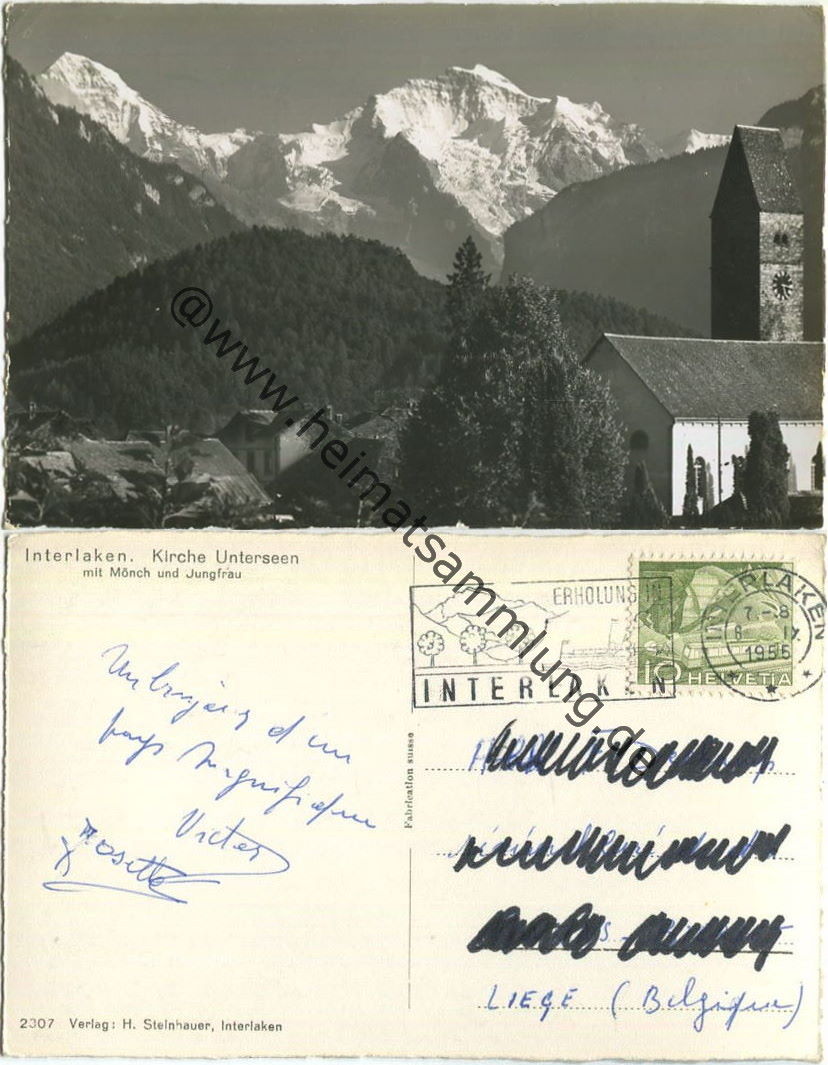 @www.heimatsammlung.de
Interlaken. Kirche Unterseen
mit Mönch und Jungfrau
ERHOLUNG IN
INTERLAKEN
INTERLAKEN
7.-8
8. IX.
1955
10 HELVETIA
Un bonjour d'un
pays magnifique
Victor
Rosette
Fabrication suisse
LIEGE (Belgique)
2307 Verlag: H. Steinhauer, Interlaken